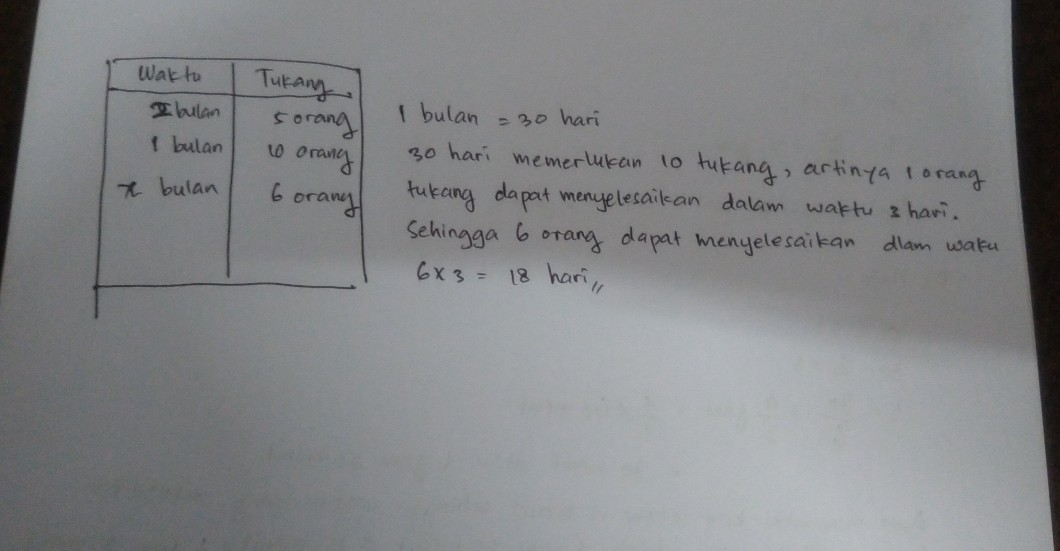 Waktu Tukang
bulan 5 orang
1 bulan 10 orang
x bulan 6 orang
1 bulan = 30 hari
30 hari memerlukan 10 tukang, artinya 1 orang
tukang dapat menyelesaikan dalam waktu 3 hari.
Sehingga 6 orang dapat menyelesaikan dlam waku
6x3 = 18 hari,,